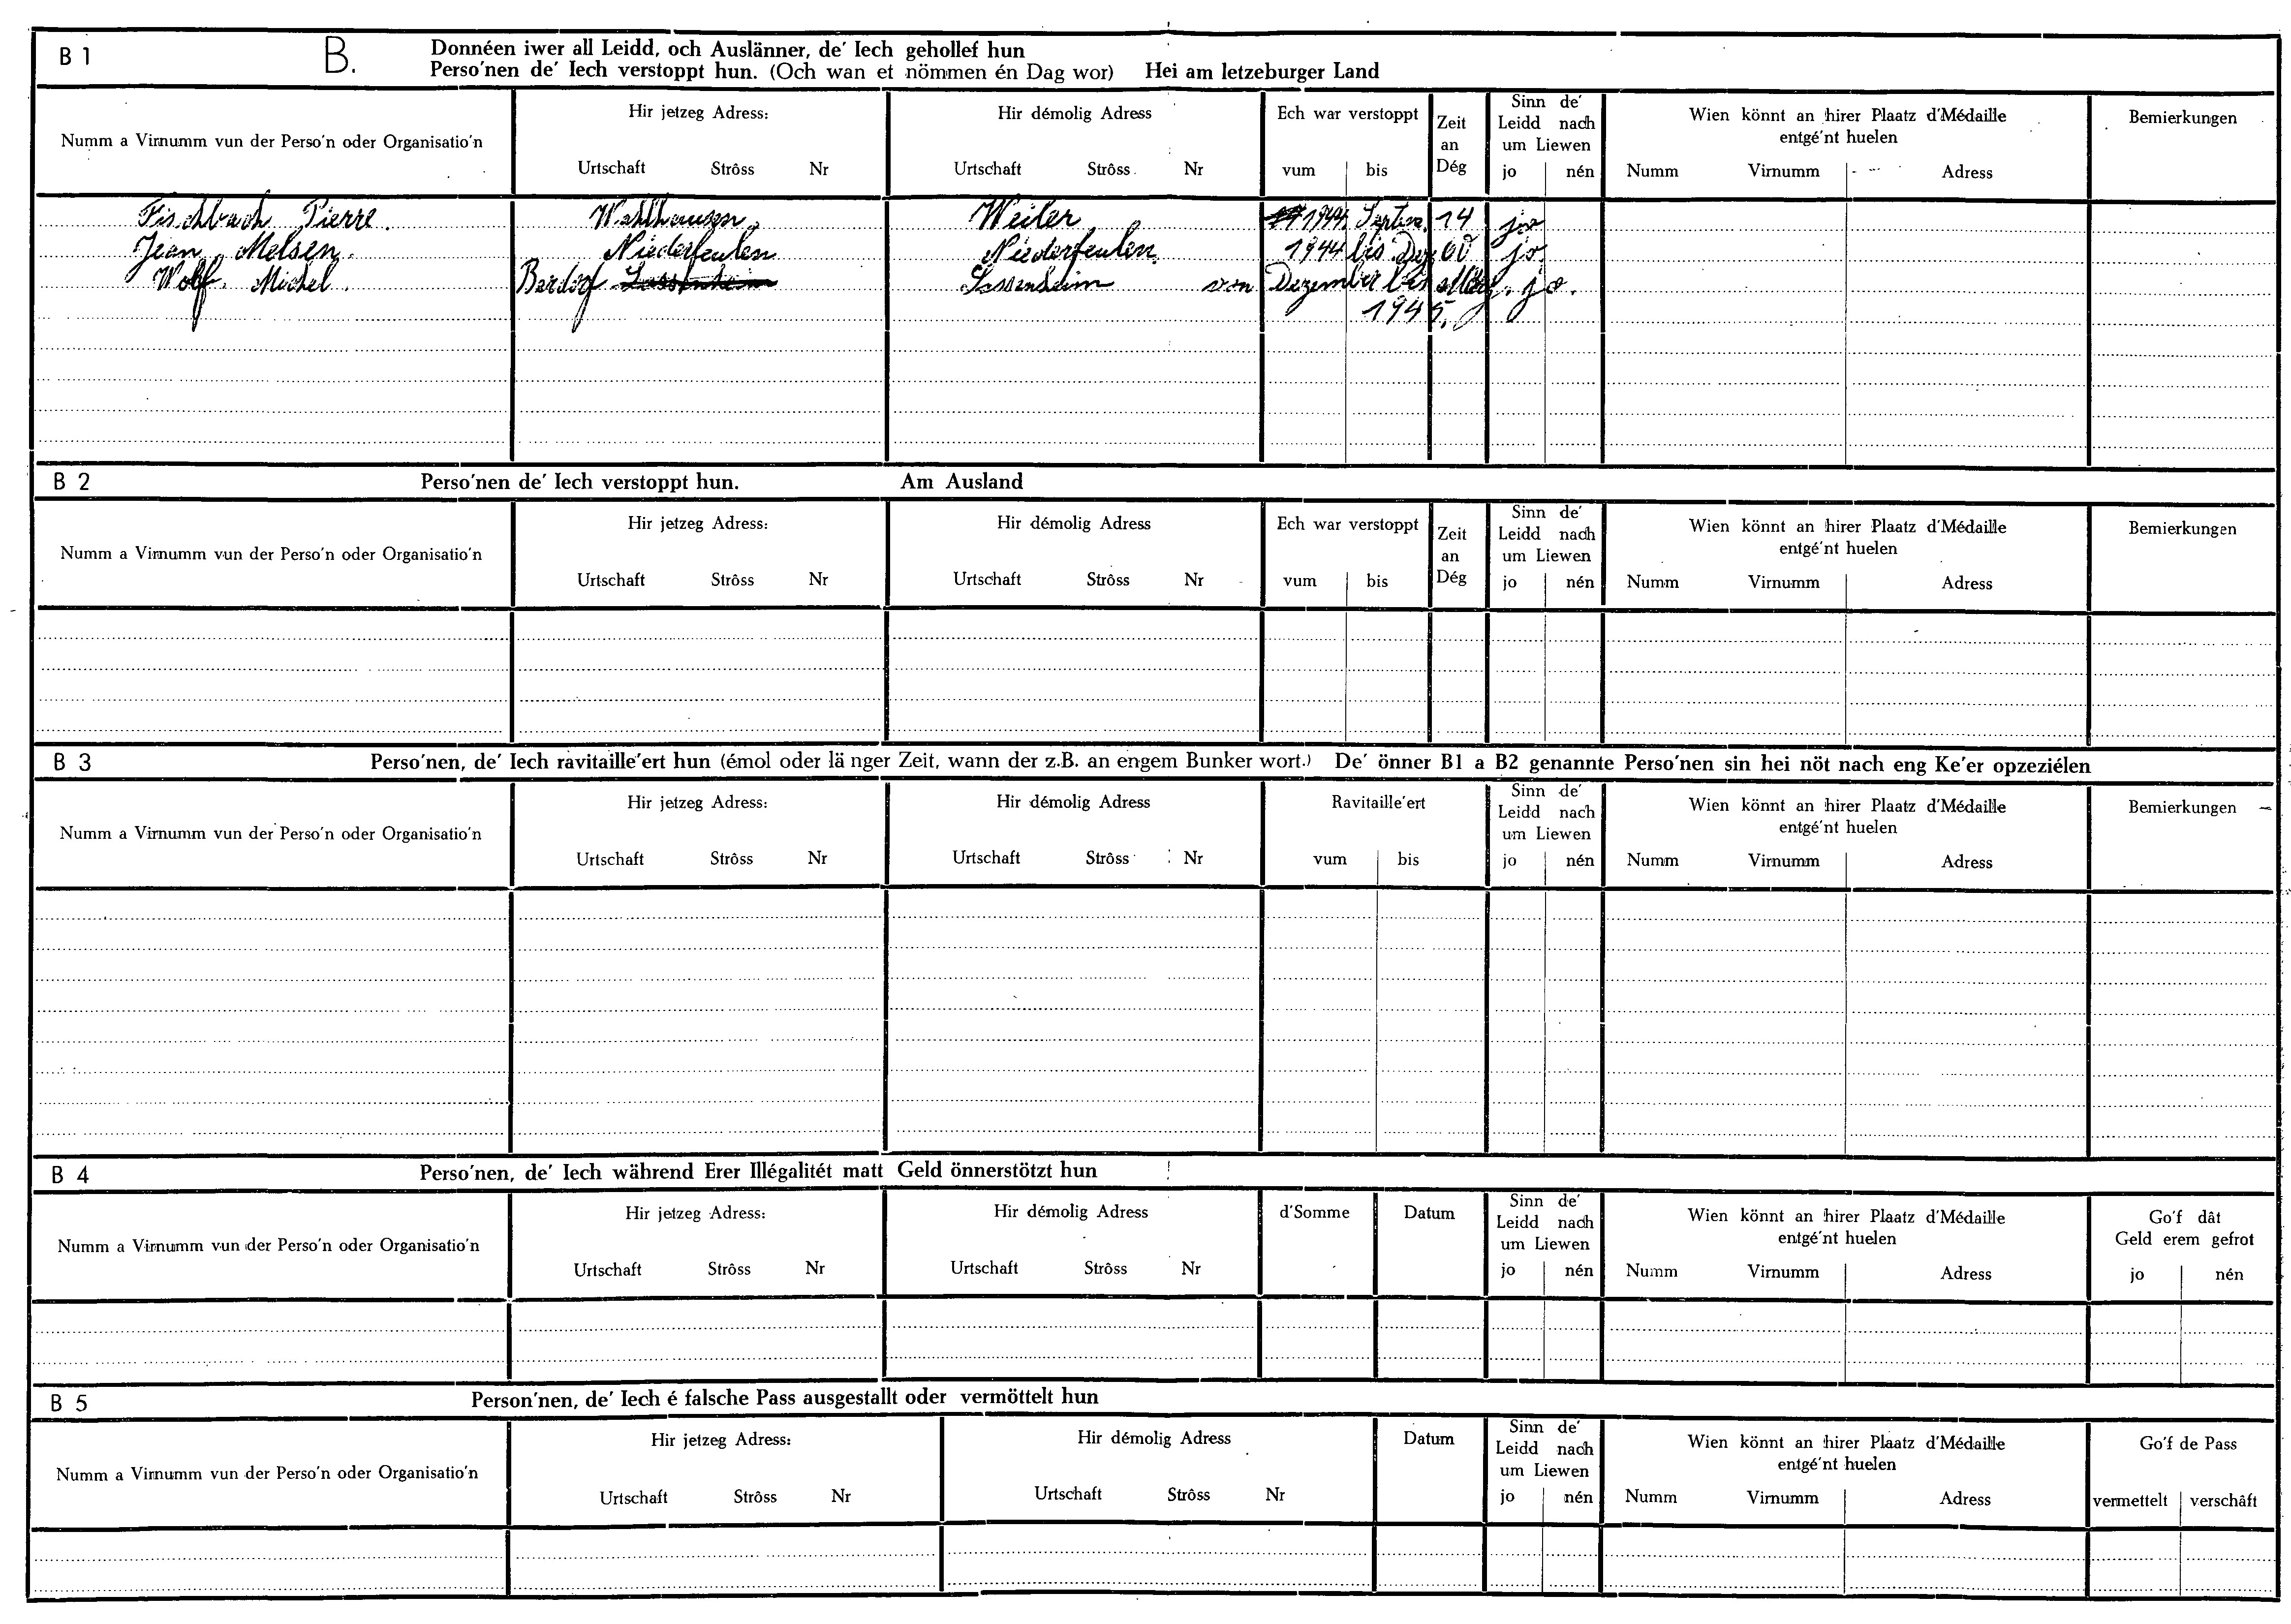 B 1 B. Donnéen iwer all Leidd, och Auslänner, de' Iech gehollef hun
Perso'nen de' Iech verstoppt hun. (Och wan et nömmen én Dag wor) Hei am letzeburger Land
Numm a Virnumm vun der Perso'n oder Organisatio'n
Hir jetzeg Adress:
Urtschaft Strôss Nr
Hir démolig Adress
Urtschaft Strôss Nr
Ech war verstoppt
vum bis
Zeit
an
Dég
Sinn de'
Leidd nach
um Liewen
jo nén
Wien könnt an hirer Plaatz d'Médaille
entgé'nt huelen
Numm Virnumm Adress
Bemierkungen
Fischbach Pierre. Wahlhausen. Weiler 1944 Septem. 14 jo
Jean Melsen. Niederfeulen Niederfeulen. 1944 bis Dez 60 jo.
Wolf. Michel. Berdorf von Dezember bis jo.
1945.
B 2 Perso'nen de' Iech verstoppt hun. Am Ausland
Numm a Virnumm vun der Perso'n oder Organisatio'n
Hir jetzeg Adress:
Urtschaft Strôss Nr
Hir démolig Adress
Urtschaft Strôss Nr
Ech war verstoppt
vum bis
Zeit
an
Dég
Sinn de'
Leidd nach
um Liewen
jo nén
Wien könnt an hirer Plaatz d'Médaille
entgé'nt huelen
Numm Virnumm Adress
Bemierkungen
B 3 Perso'nen, de' Iech ravitaille'ert hun (émol oder länger Zeit, wann der z.B. an engem Bunker wort.) De' önner B1 a B2 genannte Perso'nen sin hei nöt nach eng Ke'er opzeziélen
Numm a Virnumm vun der Perso'n oder Organisatio'n
Hir jetzeg Adress:
Urtschaft Strôss Nr
Hir démolig Adress
Urtschaft Strôss Nr
Ravitaille'ert
vum bis
Sinn de'
Leidd nach
um Liewen
jo nén
Wien könnt an hirer Plaatz d'Médaille
entgé'nt huelen
Numm Virnumm Adress
Bemierkungen
B 4 Perso'nen, de' Iech während Erer Illégalitét matt Geld önnerstötzt hun
Numm a Virnumm vun der Perso'n oder Organisatio'n
Hir jetzeg Adress:
Urtschaft Strôss Nr
Hir démolig Adress
Urtschaft Strôss Nr
d'Somme
Datum
Sinn de'
Leidd nach
um Liewen
jo nén
Wien könnt an hirer Plaatz d'Médaille
entgé'nt huelen
Numm Virnumm Adress
Go'f dât
Geld erem gefrot
jo nén
B 5 Person'nen, de' Iech é falsche Pass ausgestallt oder vermöttelt hun
Numm a Virnumm vun der Perso'n oder Organisatio'n
Hir jetzeg Adress:
Urtschaft Strôss Nr
Hir démolig Adress
Urtschaft Strôss Nr
Datum
Sinn de'
Leidd nach
um Liewen
jo nén
Wien könnt an hirer Plaatz d'Médaille
entgé'nt huelen
Numm Virnumm Adress
Go'f de Pass
vermettelt verschâft